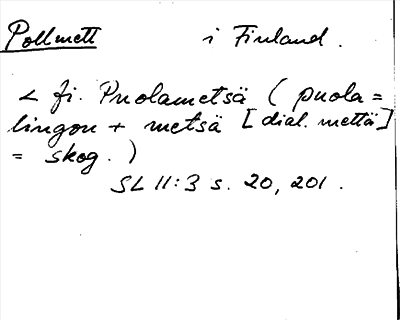 Pollmett i Finland.
< fi. Puolametsä (puola =
lingon + metsä [dial. mettä]
= skog.)
SL 11:3 s. 20, 201.